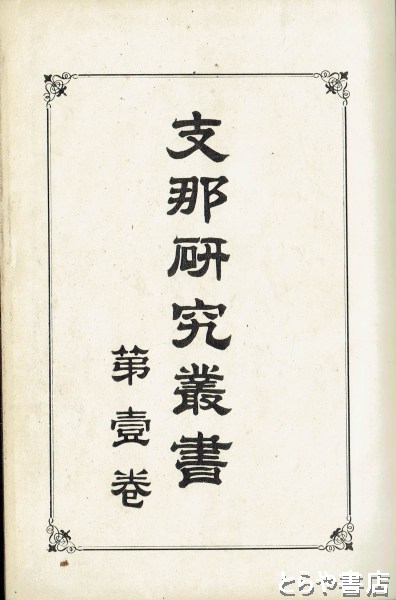 支那研究叢書
第壹卷
とらや書店